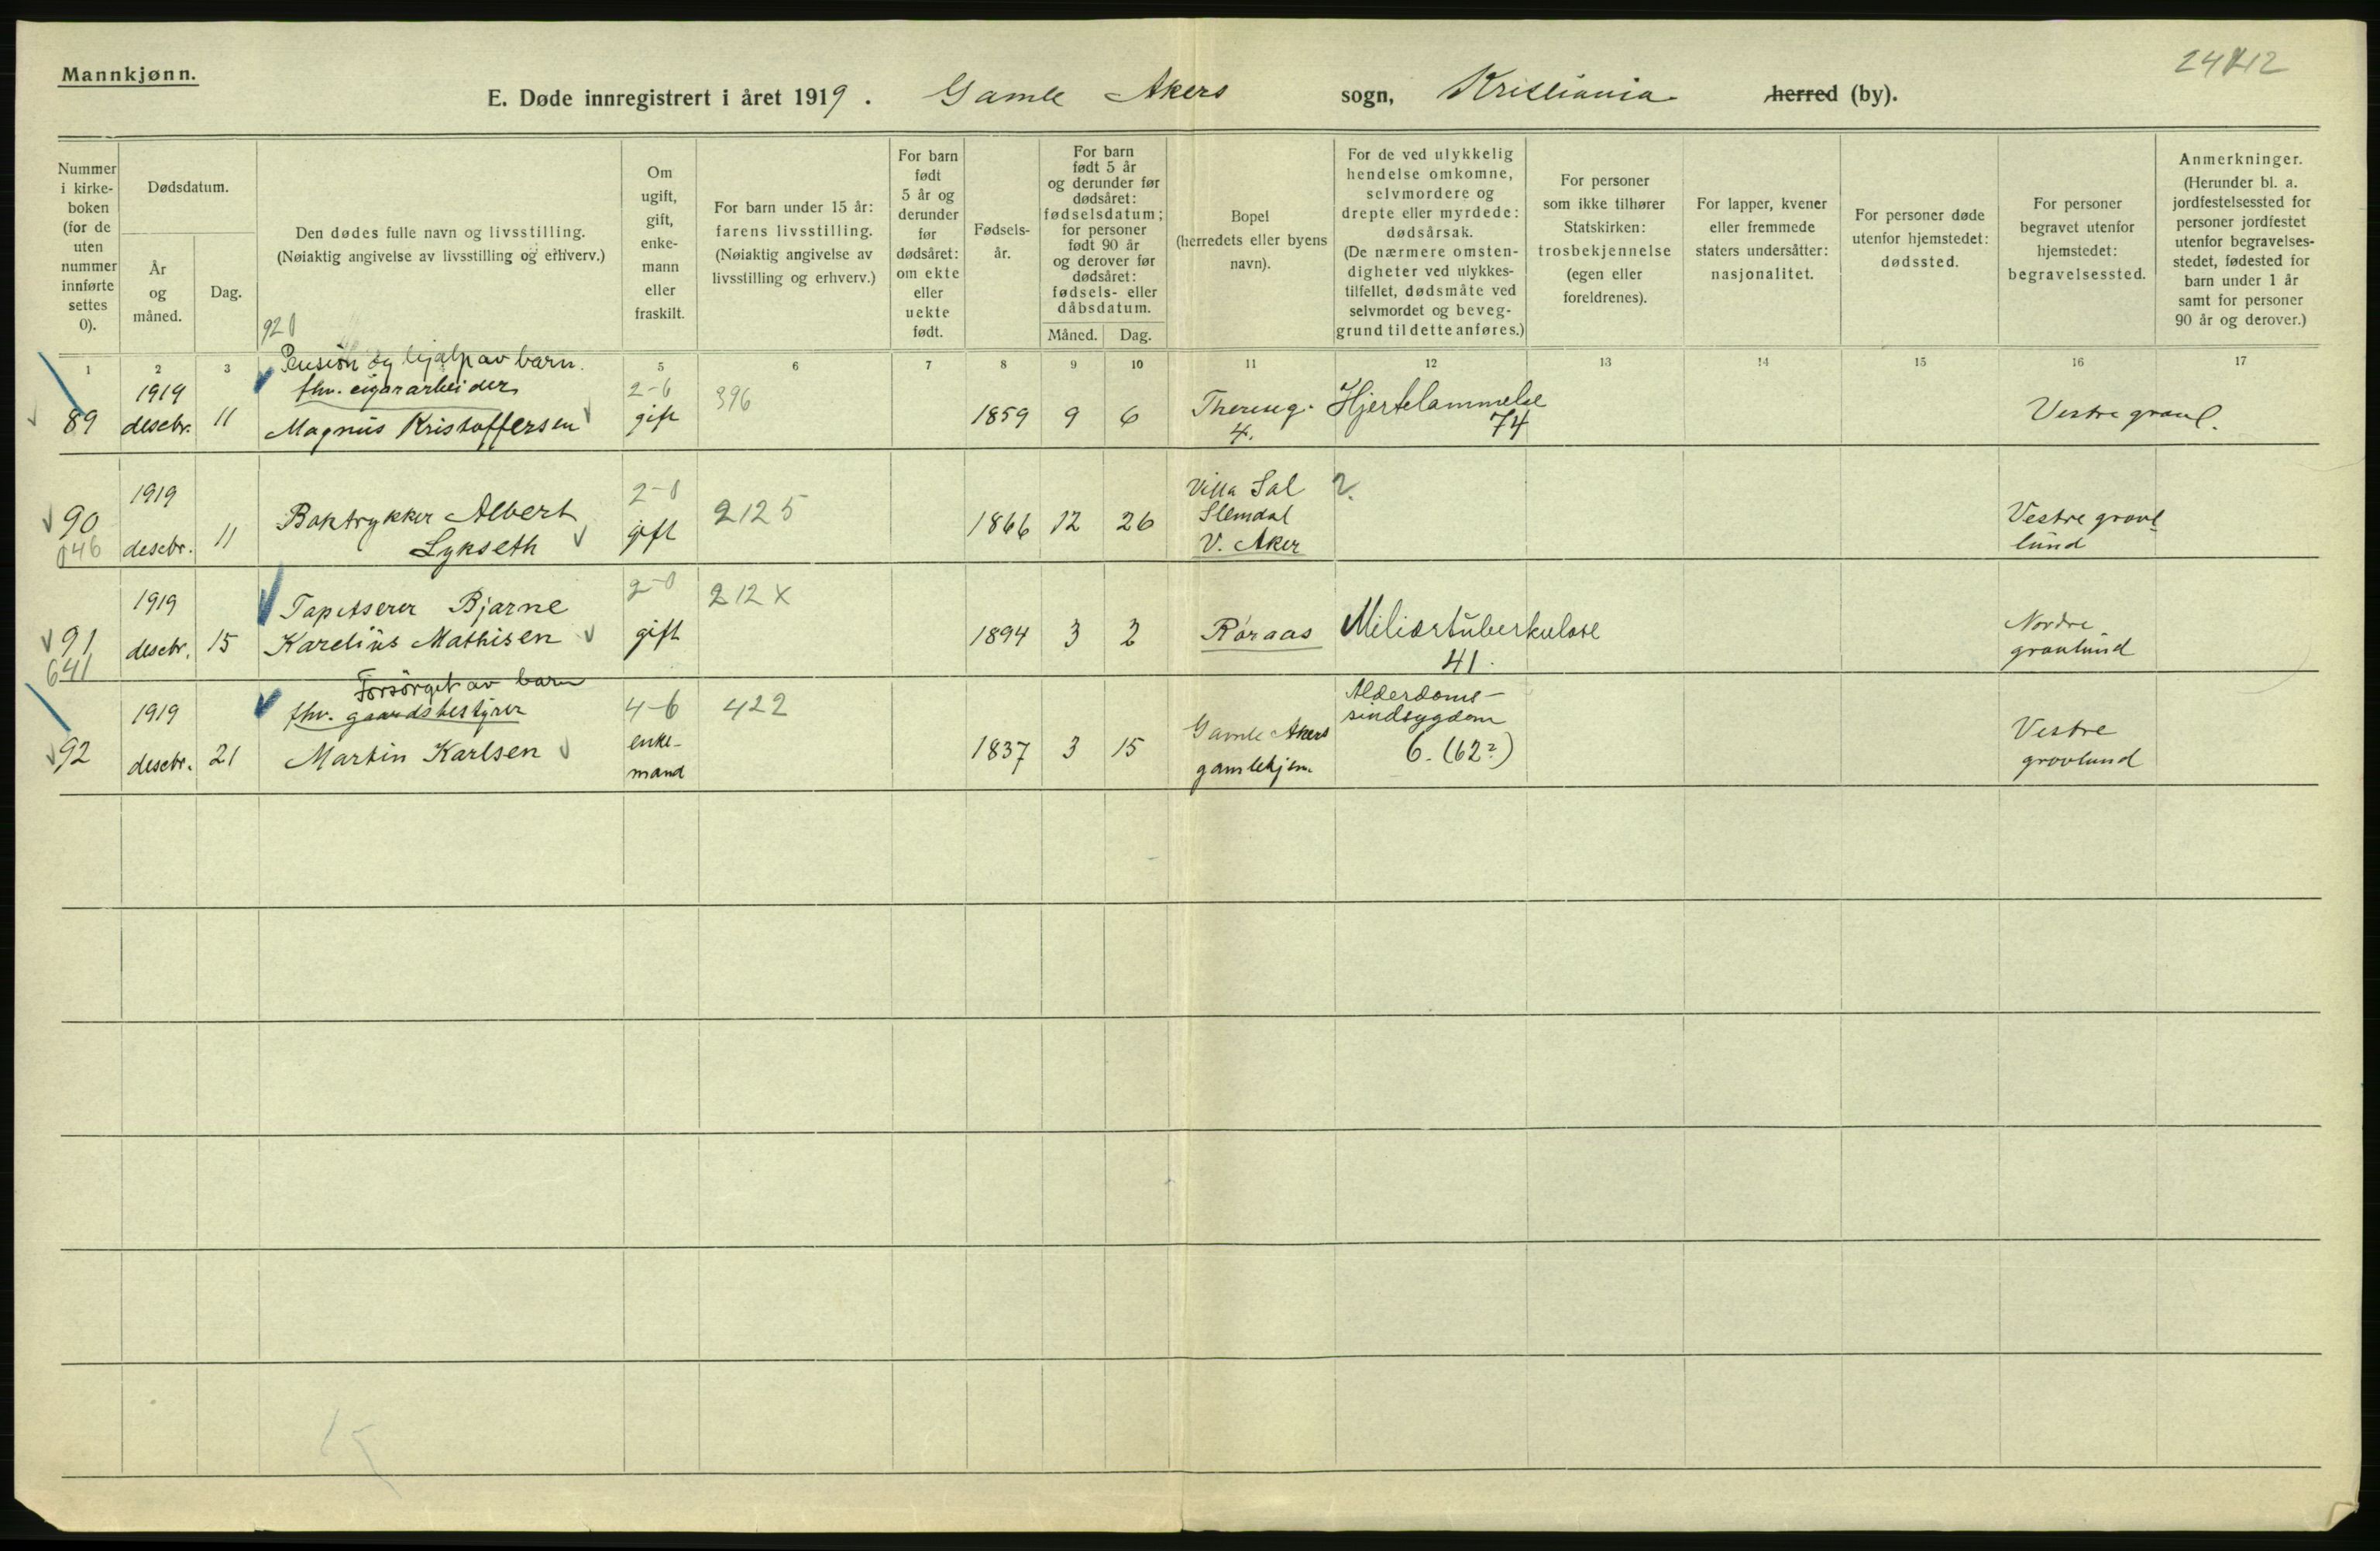 Mannkjønn.
24212
E. Døde innregistrert i året 1919. Gamle Akers sogn, Kristiania herred (by).
Nummer i kirke-boken (for de uten nummer innførte settes 0).
Dødsdatum.
År og måned.
Dag.
Den dødes fulle navn og livsstilling.
(Nøiaktig angivelse av livsstilling og erhverv.)
Om ugift, gift, enke-mann eller fraskilt.
For barn under 15 år: farens livsstilling.
(Nøiaktig angivelse av livsstilling og erhverv.)
For barn født 5 år og derunder før dødsåret: om ekte eller uekte født.
Fødsels-år.
For barn født 5 år og derunder før dødsåret: fødselsdatum; for personer født 90 år og derover før dødsåret: fødsels- eller dåbsdatum.
Måned. Dag.
Bopel (herredets eller byens navn).
For de ved ulykkelig hendelse omkomne, selvmordere og drepte eller myrdede: dødsårsak.
(De nærmere omsten-digheter ved ulykkes-tilfellet, dødsmåte ved selvmordet og beveg-grund til dette anføres.)
For personer som ikke tilhører Statskirken: trosbekjennelse (egen eller foreldrenes).
For lapper, kvener eller fremmede staters undersåtter: nasjonalitet.
For personer døde utenfor hjemstedet: dødssted.
For personer begravet utenfor hjemstedet: begravelsessted.
Anmerkninger.
(Herunder bl. a. jordfestelsessted for personer jordfestet utenfor begravelses-stedet, fødested for barn under 1 år samt for personer 90 år og derover.)
920
1 2 3 5 6 7 8 9 10 11 12 13 14 15 16 17
Pension og hjælp av barn.
1919 fhv. cigararbeider 2-6 396
89 descbr. 11 Magnus Kristoffersen gift 1859 9 6 Thereseg. 4. Hjertelammelse 74 Vestre gravl.
1919 2-0 2125 Villa Sal ?
90 descbr. 11 Boktrykker Albert Lykseth gift 1866 12 26 Slemdal V. Aker Vestre gravlund
046
1919 2-0 212X
91 descbr. 15 Tapetserer Bjarne Karelius Mathisen gift 1894 3 2 Røraas Miliærtuberkulose 41. Nordre gravlund
641
Forsørget av barn
1919 fhv. gaardsbestyrer 4-6 422 Alderdoms-sindsygdom
92 descbr. 21 Martin Karlsen enke-mand 1837 3 15 Gamle Akers gamlehjem 6. (62?) Vestre gravlund
15